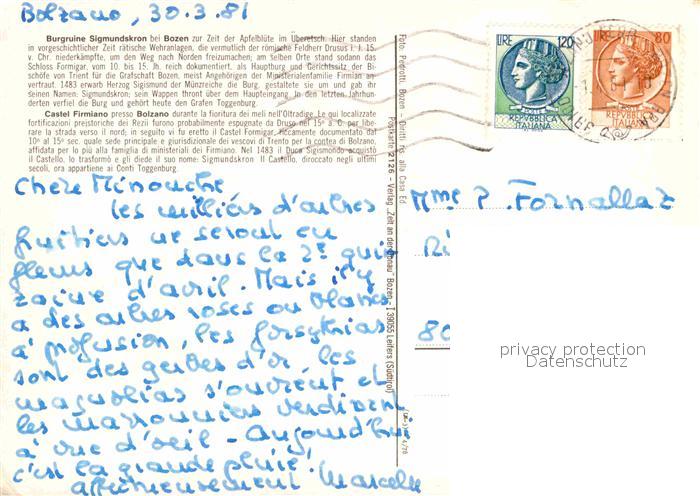 Bolzano, 30.3.81
Burgruine Sigmundskron bei Bozen zur Zeit der Apfelblüte im Überetsch. Hier standen
in vorgeschichtlicher Zeit rätische Wehranlagen, die vermutlich der römische Feldherr Drusus i. J. 15.
v. Chr. niederkämpfte, um den Weg nach Norden freizumachen; am selben Orte stand sodann das
Schloss Formigar, vom 10. bis 15. Jh. reich dokumentiert, als Hauptburg und Gerichtssitz der Bi-
schöfe von Trient für die Grafschaft Bozen, meist Angehörigen der Ministerialenfamilie Firmian an-
vertraut. 1483 erwarb Herzog Sigismund der Münzreiche die Burg, gestaltete sie um und gab ihr
seinen Namen. Sigmundskron; sein Wappen thront über dem Haupteingang. In den letzten Jahrhun-
derten verfiel die Burg und gehört heute den Grafen Toggenburg.
Castel Firmiano presso Bolzano durante la fioritura dei meli nell'Oltradige. Le qui localizzate
fortificazioni preistoriche dei Rezii furono probabilmente espugnate da Druso nel 15º a. C. per libe-
rare la strada verso il nord; in seguito vi fu eretto il Castel Formigar, riccamente documentato dal
10º al 15º sec. quale sede principale e giurisdizionale dei vescovi di Trento per la contea di Bolzano,
affidata per lo più alla famiglia di ministeriali dei Firmiano. Nel 1483 il Duca Sigismondo acquistò
il Castello, lo trasformò e gli diede il suo nome: Sigmundskron Il Castello, diroccato negli ultimi
secoli, ora appartiene ai Conti Toggenburg.
Chère Minouche
les milliers d'arbres
fruitiers ne seront en
fleurs que dans la 2e quin
zaine d'avril. Mais il y
a des arbres roses ou blancs
à profusion, les forsythias
sont des gerbes d'or, les
magnolias s'ouvrent et
les marronniers verdissent
à vue d'oeil - Aujourd'hui
c'est la grande pluie!
Affectueusement Marcelle
Foto: Pedrotti, Bozen - Diritti ris. alla Casa Ed.
Postkarte 2126 - Verlag „Zeit an der Donau" Bozen - I 39055 Leifers (Südtirol)
LIRE 120
REPUBBLICA
ITALIANA
LIRE 80
REPUBBLICA
ITALIANA
Mme P. Fornallaz
80
privacy protection
Datenschutz